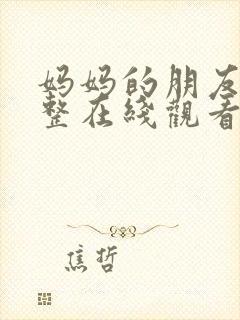 妈妈的朋友
整在綫觀看
焦哲